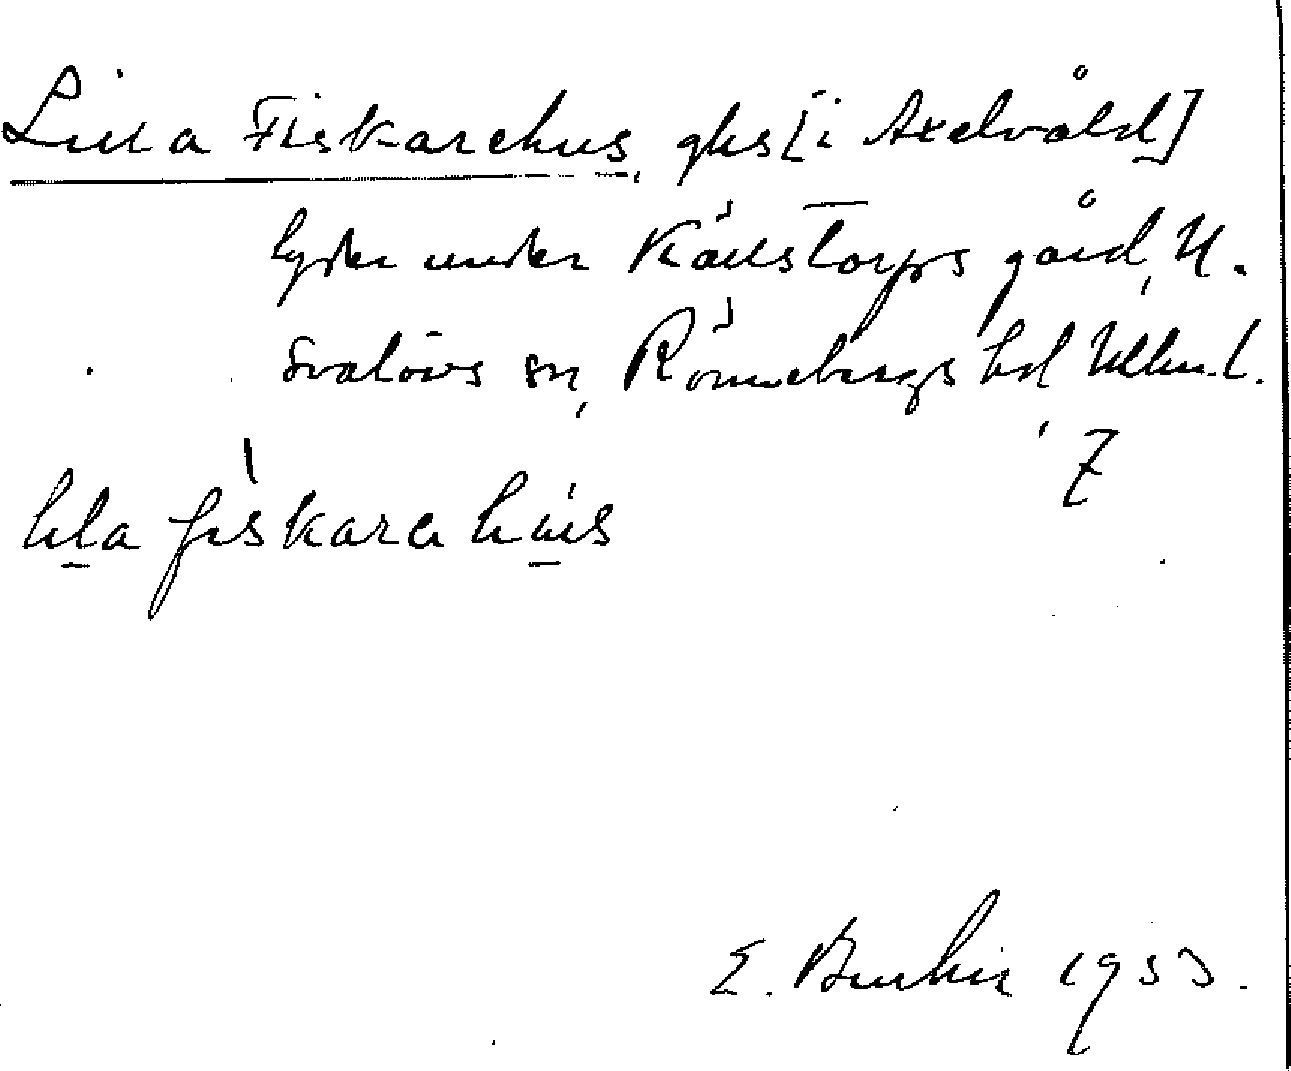 Lilla Fiskarehus, ghs [i Axelvåld]
lyder under Källstorps gård, N.
Svalövs sn, Rönnebergs hd, Mlm. l.
lila fiskara hus
E. 1933.